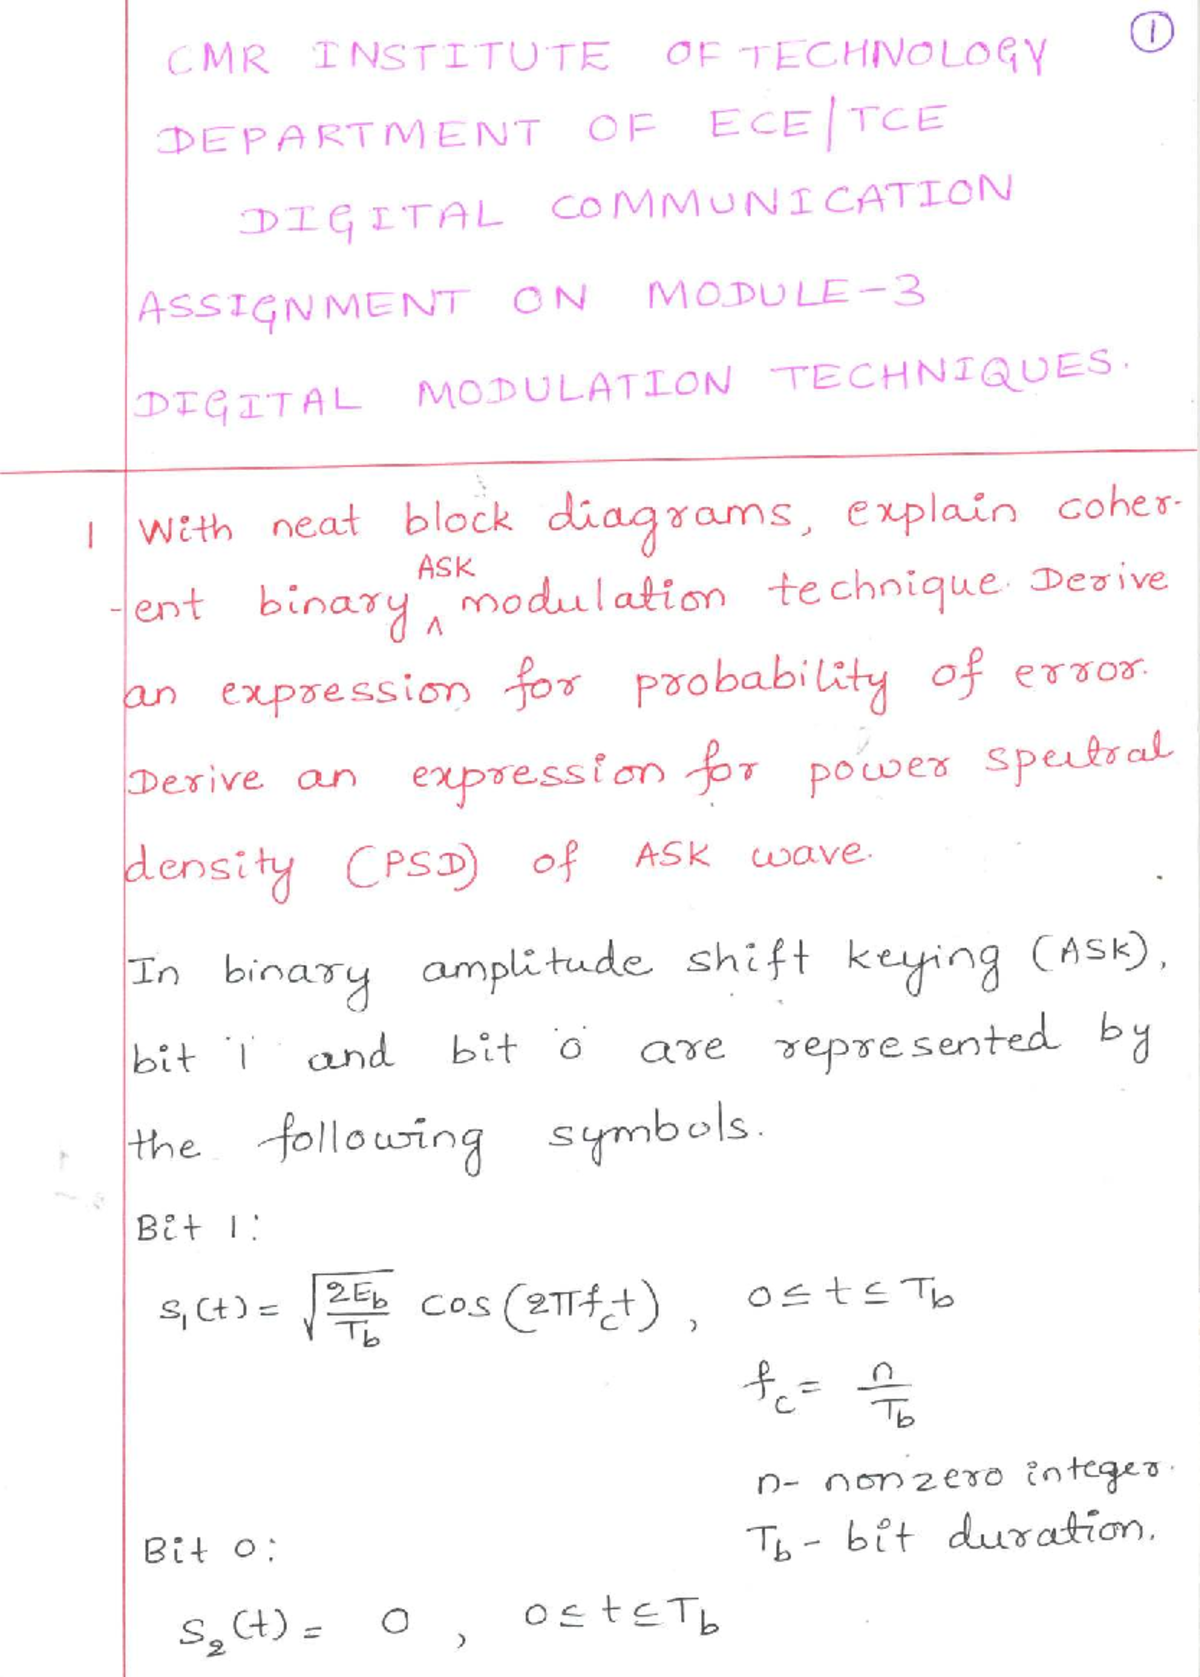 1
CMR INSTITUTE OF TECHNOLOGY
DEPARTMENT OF ECE/TCE
DIGITAL COMMUNICATION
ASSIGNMENT ON MODULE-3
DIGITAL MODULATION TECHNIQUES.
1 With neat block diagrams, explain coher-
-ent binary ASK modulation technique. Derive
an expression for probability of error.
Derive an expression for power spectral
density (PSD) of ASK wave.
In binary amplitude shift keying (ASK),
bit '1' and bit '0' are represented by
the following symbols.
Bit 1:
s₁(t) = √(2E_b/T_b) cos(2πf_c t), 0≤t≤T_b
f_c = n/T_b
n- nonzero integer.
T_b - bit duration.
Bit 0:
s₂(t) = 0, 0≤t≤T_b